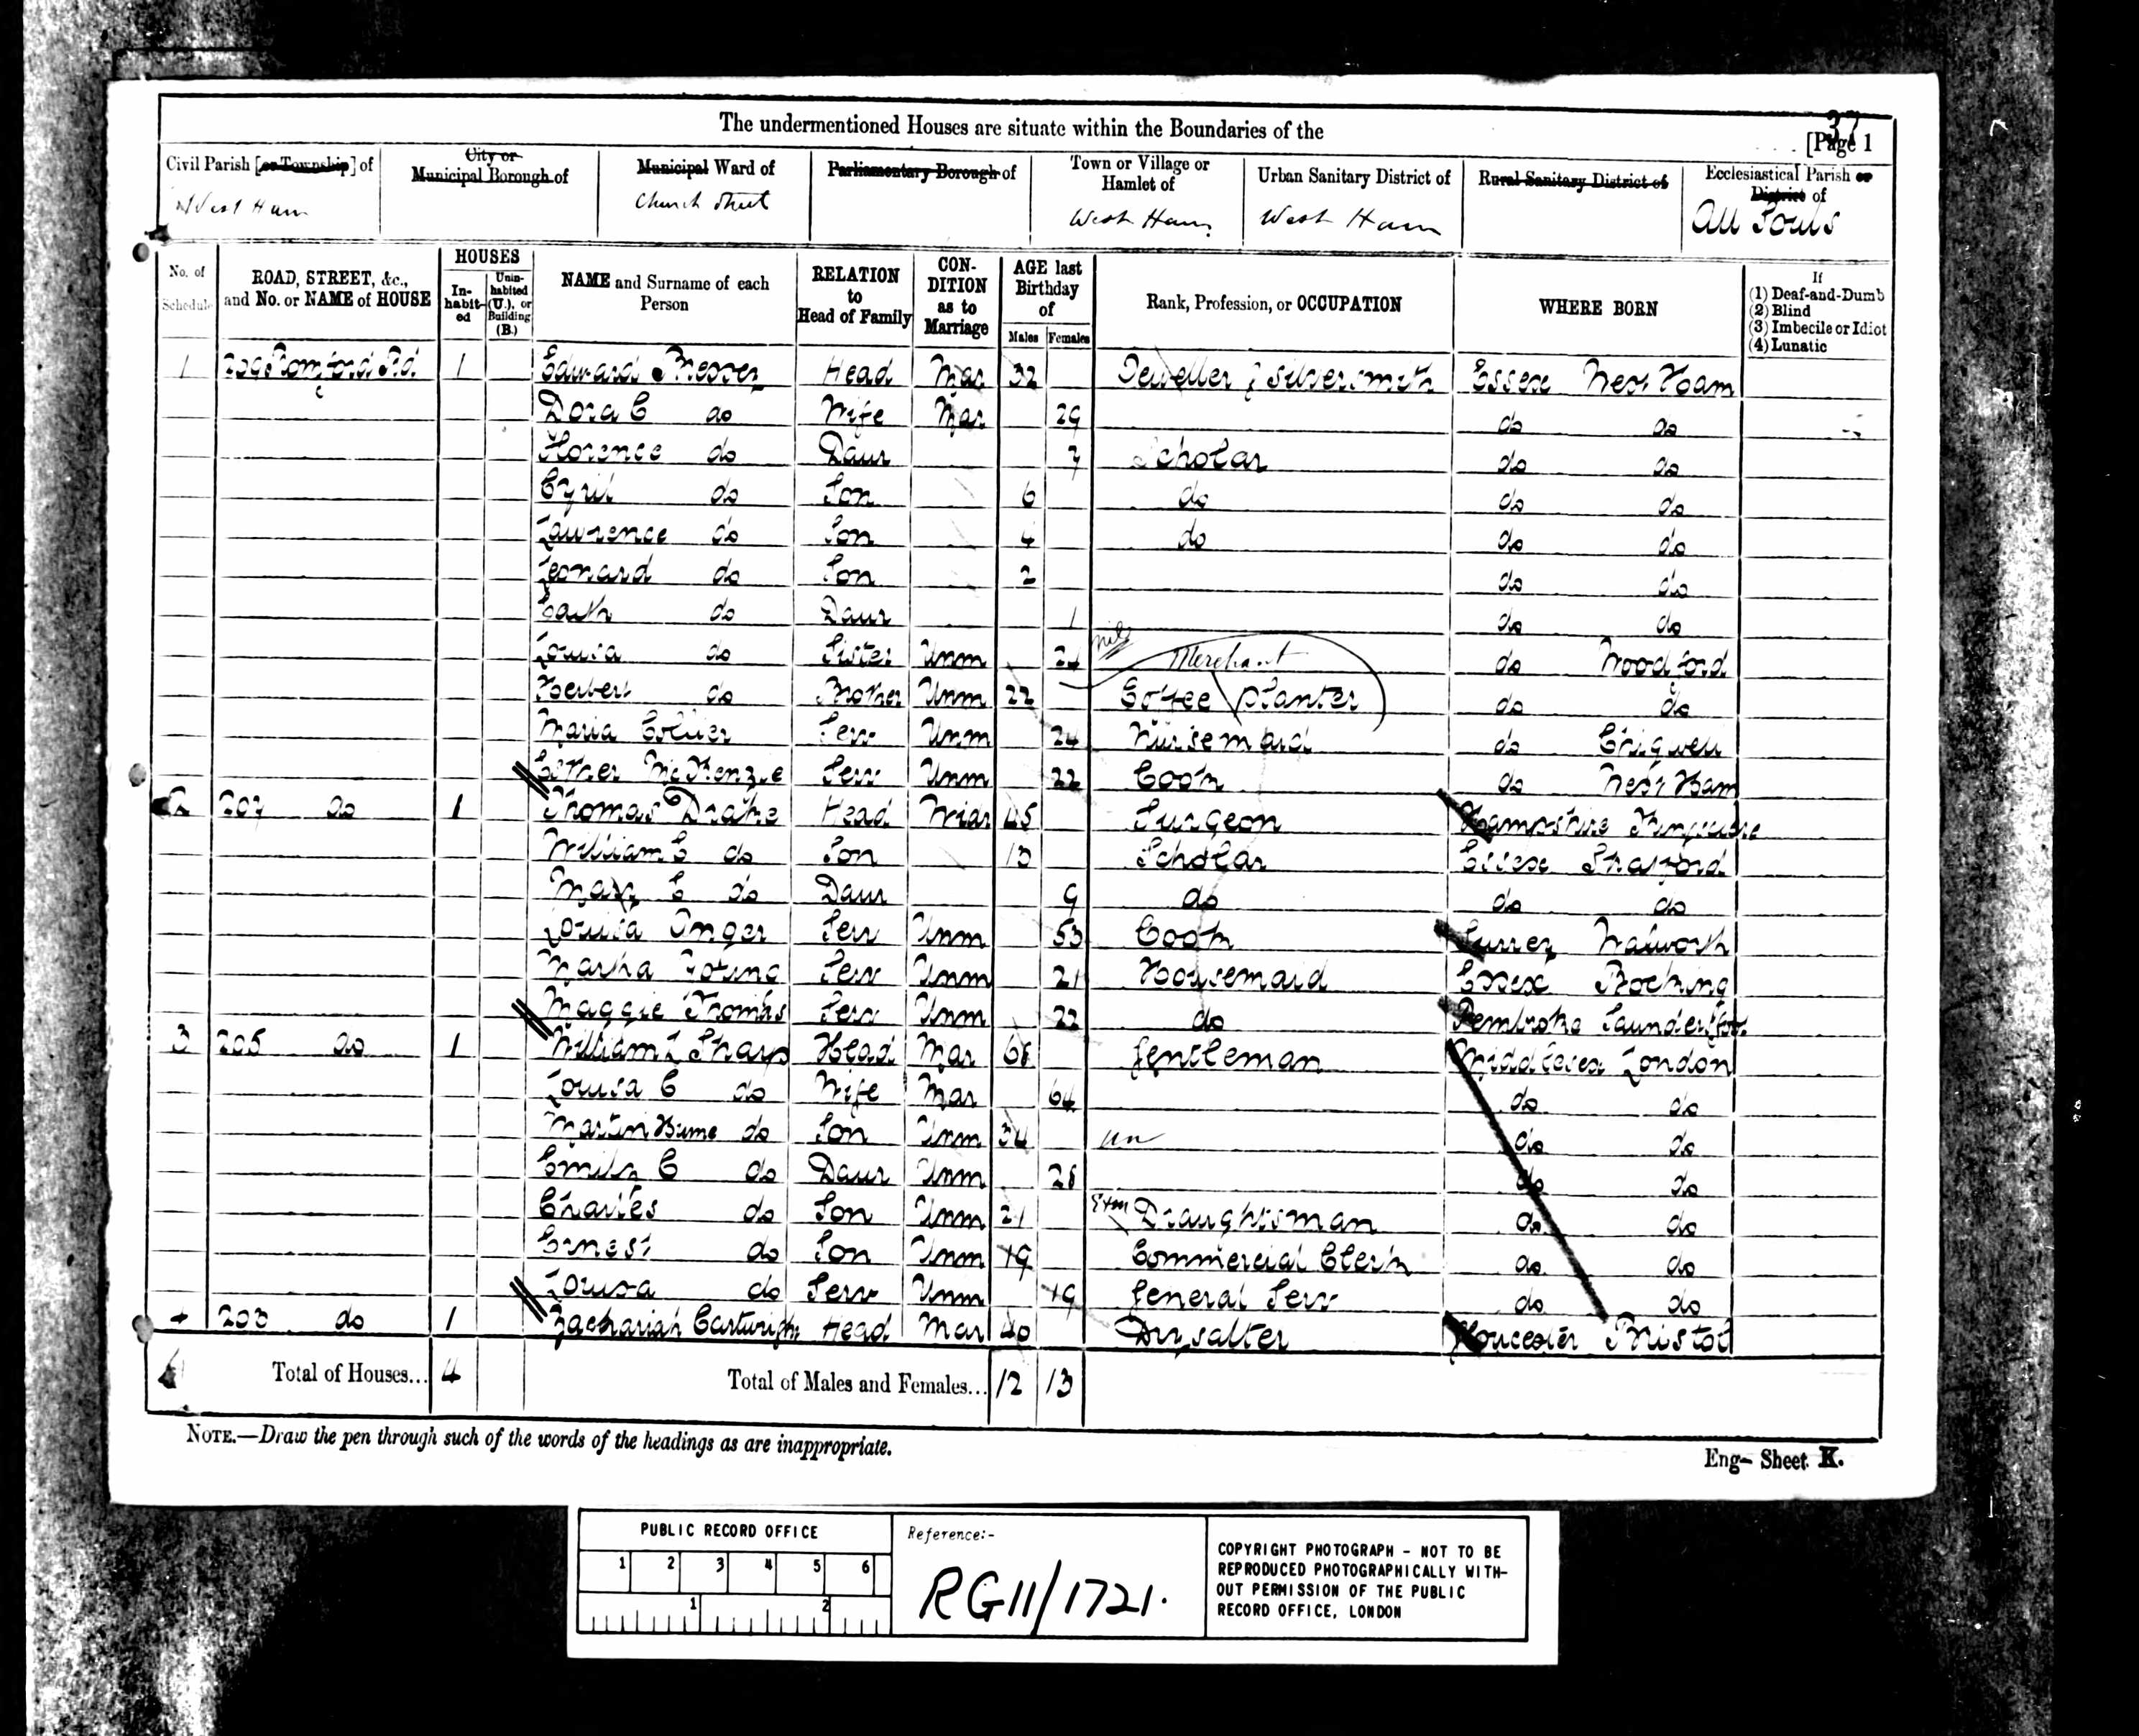 The undermentioned Houses are situate within the Boundaries of the
37
[Page 1
Civil Parish [or Township] of
West Ham
City or Municipal Borough of
Municipal Ward of
Church Street
Parliamentary Borough of
Town or Village or Hamlet of
West Ham
Urban Sanitary District of
West Ham
Rural Sanitary District of
Ecclesiastical Parish or District of
All Souls
No. of Schedule
ROAD, STREET, &c., and No. or NAME of HOUSE
HOUSES
In-habit-ed
Unin-habited (U.), or Building (B.)
NAME and Surname of each Person
RELATION to Head of Family
CON-DITION as to Marriage
AGE last Birthday of
Males
Females
Rank, Profession, or OCCUPATION
WHERE BORN
If
(1) Deaf-and-Dumb
(2) Blind
(3) Imbecile or Idiot
(4) Lunatic
1 209 Romford Rd 1 Edward Head Mar 32 Jeweller & Silversmith Essex West Ham
Dora C do Wife Mar 29 do do
Florence do Daur 7 Scholar do do
Cyril do Son 6 do do do
Lawrence do Son 4 do do do
Leonard do Son 2 do do
do Daur 1 do do
Louisa do Sister Unm 24 do Woodford
Merchant
Herbert do Brother Unm 22 Coffee planter do do
Maria Collier Serv Unm 24 Nursemaid do Chigwell
Esther McKenzie Serv Unm 22 Cook do West Ham
2 207 do 1 Thomas Drake Head 45 Surgeon Hampshire Kingsclere
William C do Son 13 Scholar Essex Stratford
Mary C do Daur 9 do do do
Louisa Unger Serv Unm 53 Cook Surrey Walworth
Martha Young Serv Unm 21 Housemaid Essex Bocking
Maggie Thomas Serv Unm 22 do Pembroke Saundersfoot
3 205 do 1 William L Sharp Head Mar 68 Gentleman Middlesex London
Louisa C do Wife Mar 64 do do
Martin Hume do Son Unm 34 un do do
Emily C do Daur Unm 28 do do
Charles do Son Unm 21 Draughtsman do do
Ernest do Son Unm 19 Commercial Clerk do do
Louisa do Serv Unm 19 General Serv do do
4 203 do 1 Zachariah Cartwright Head Mar 40 Drysalter Gloucester Bristol
Total of Houses... 4
Total of Males and Females... 12 13
NOTE.—Draw the pen through such of the words of the headings as are inappropriate.
Eng— Sheet K.
PUBLIC RECORD OFFICE
1 2 3 4 5 6
1 2
Reference:-
RG11/1721.
COPYRIGHT PHOTOGRAPH - NOT TO BE
REPRODUCED PHOTOGRAPHICALLY WITH-
OUT PERMISSION OF THE PUBLIC
RECORD OFFICE, LONDON